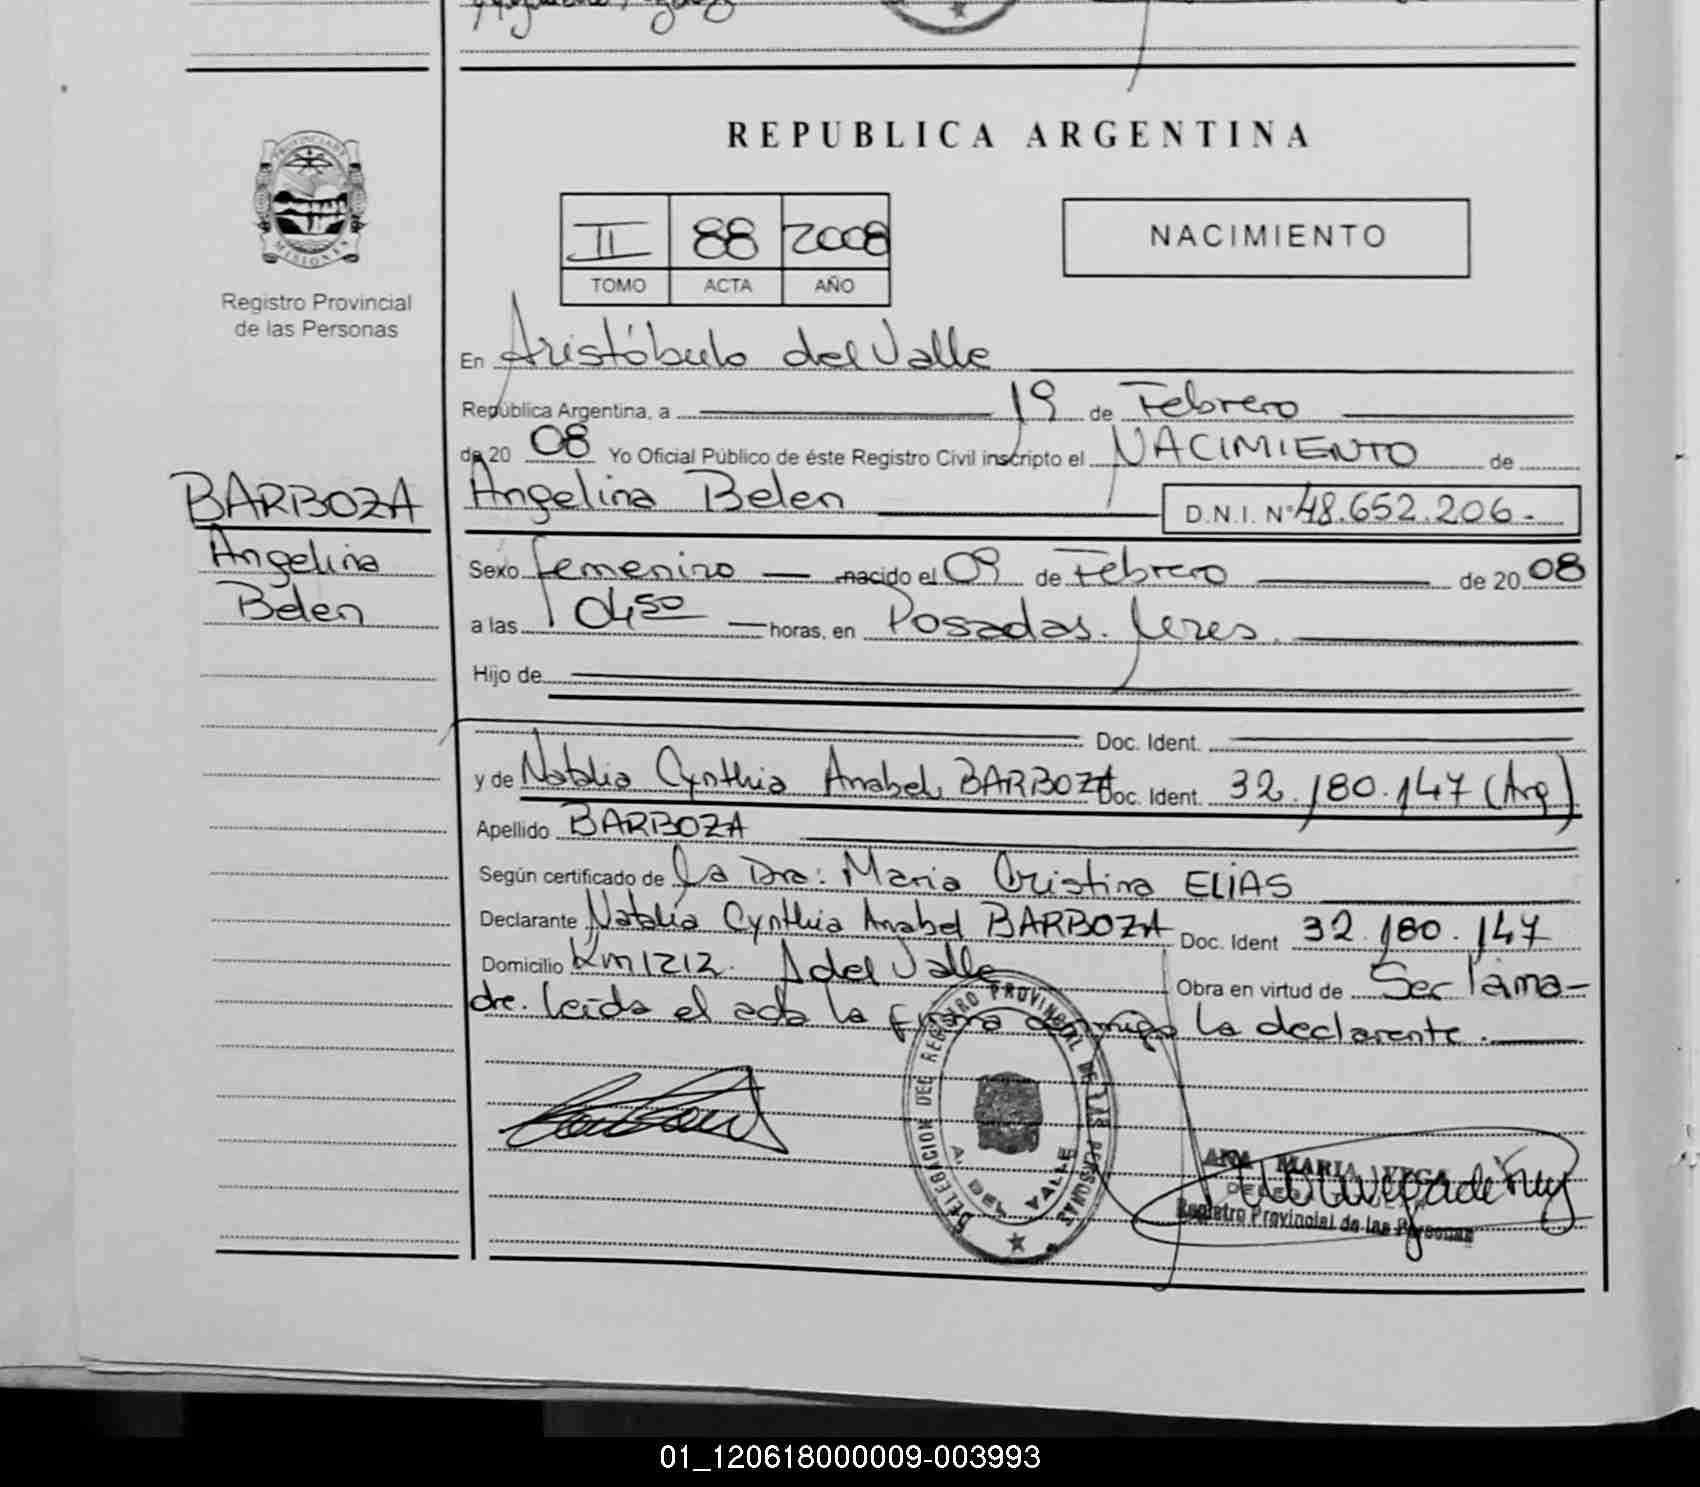 REPUBLICA ARGENTINA
PROVINCIA DE
MISIONES
Registro Provincial
de las Personas
II 88 2008
TOMO ACTA AÑO
NACIMIENTO
En Aristóbulo del Valle
República Argentina, a 19 de Febrero
de 20 08 Yo Oficial Público de éste Registro Civil inscripto el NACIMIENTO de
BARBOZA
Angelina
Belen
Angelina Belen D.N.I. Nº 48.652.206.-
Sexo femenino nacido el 09 de Febrero de 20 08
a las 04:50 horas, en Posadas.
Hijo de
Doc. Ident.
y de Natalia Cynthia Anabel BARBOZA Doc. Ident. 32.180.147 (Arg)
Apellido BARBOZA
Según certificado de La Dra: Maria Cristina ELIAS
Declarante Natalia Cynthia Anabel BARBOZA Doc. Ident 32.180.147
Domicilio Km 1212. A del Valle Obra en virtud de Ser la ma-
dre. leida el acta la firma conmigo la declarante.
DELEGACION DEL REGISTRO PROVINCIAL DE LAS PERSONAS
A. DEL VALLE
ANA MARIA VEGA
Registro Provincial de las Personas
01_120618000009-003993